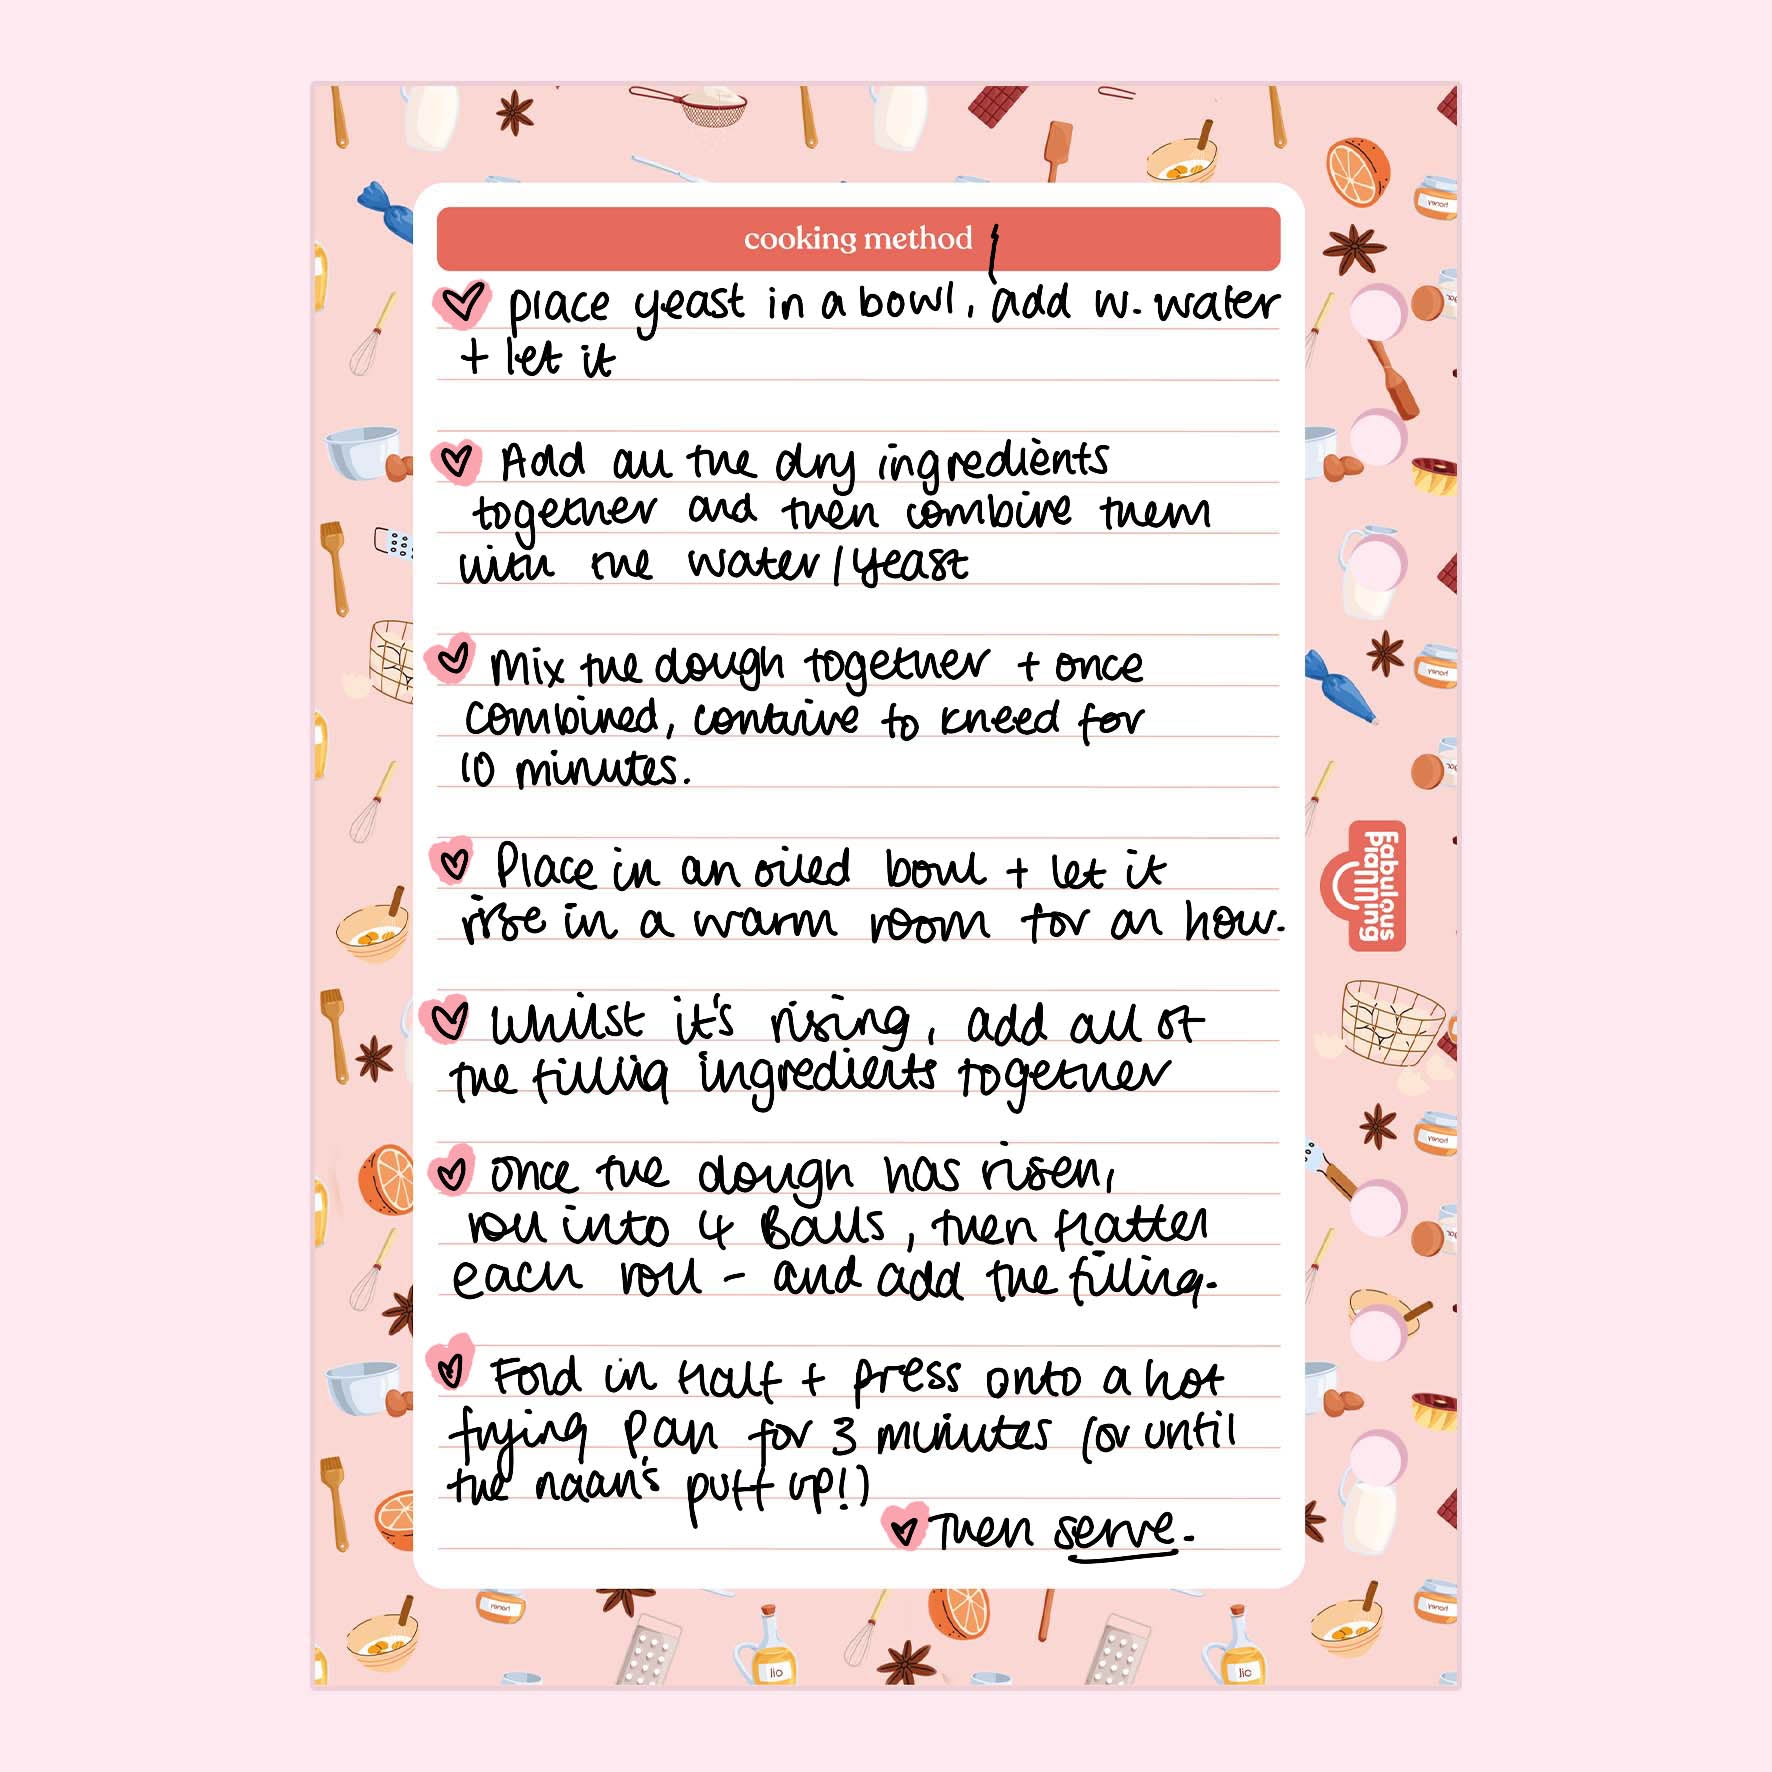 cooking method
place yeast in a bowl, add w. water
+ let it
Add all the dry ingredients
together and then combine them
with the water/yeast
Mix the dough together + once
combined, continue to kneed for
10 minutes.
Place in an oiled bowl + let it
rise in a warm room for an hour.
Whilst it's rising, add all of
the filling ingredients together
Once the dough has risen,
roll into 4 Balls, then flatten
each roll - and add the filling.
Fold in Half + press onto a hot
frying pan for 3 minutes (or until
the naan's puff up!)
Then serve.
Fabulous
Planning